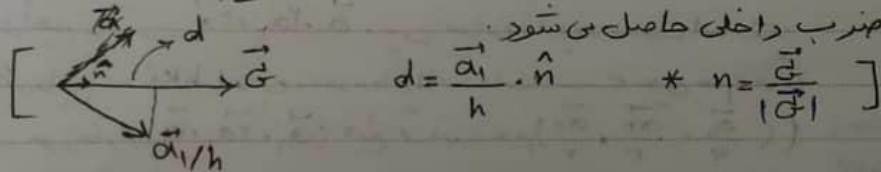 ضرب داخلی حاصل می‌شود.
d
n̂
G⃗
a⃗₁/h
d = a⃗₁/h . n̂ * n = G⃗/|G⃗|